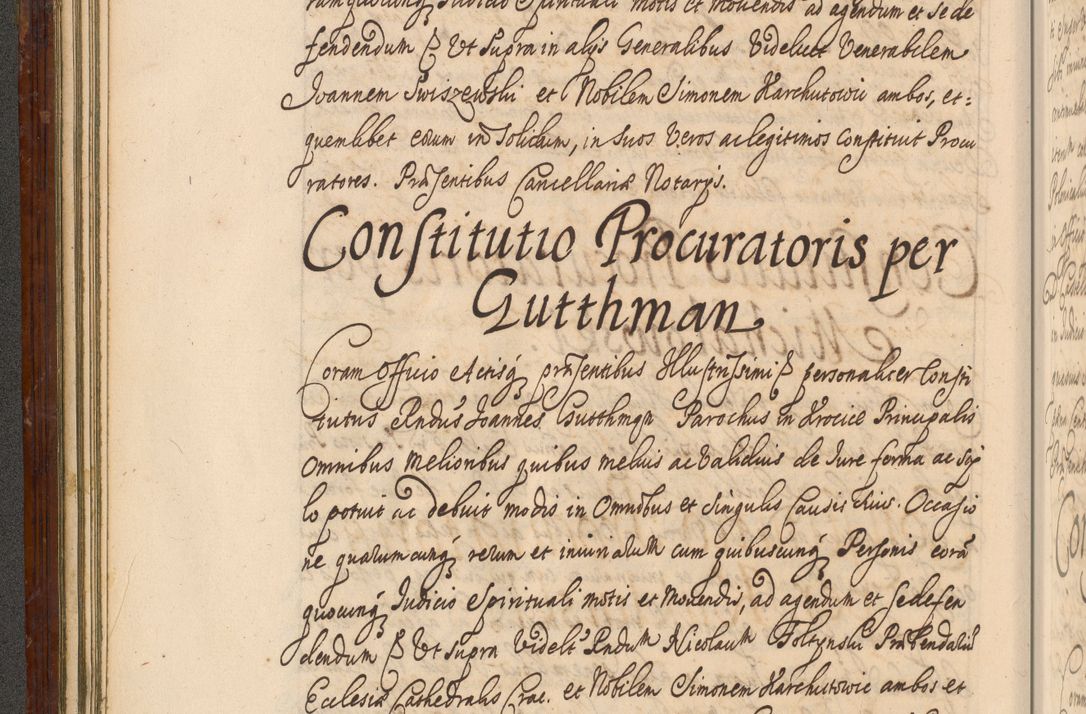 rumquocunq Iudicio Spirituali motis et movendis ad agendum et se de
fendendum P Ut supra in alijs Generalibus Videlicet Venerabilem
Joannem Swiszewski et Nobilem Simonem Harchutowic ambos, et=
quemlibet eorum in solidum, in suos Veros ac legitimos constituit Procu
ratores. Præsentibus Cancellariæ Notarijs.
Constitutio Procuratoris per
Gutthman
Coram Officio Actisq præsentibus Illustrissimi P personaliter Consti
tutus Rndus Joannes Gutthman Parochus in Krocice Principalis
Omnibus melioribus quibus melius ac Validius de Iure forma ac
lo potuit ac debuit modis in Omnibus et singulis Causis suis. Occasio
ne quarumcunq rerum et iniuriarum cum quibuscunq Personis corã
quocunq Iudicio Spirituali motis et Movendis, ad agendum et se defen
dendum P Ut supra Videlt Rndum Nicolaum Foltynski Præbendariu
Ecclesiæ Cathedralis Crac. et Nobilem Simonem Harchutowic ambos et